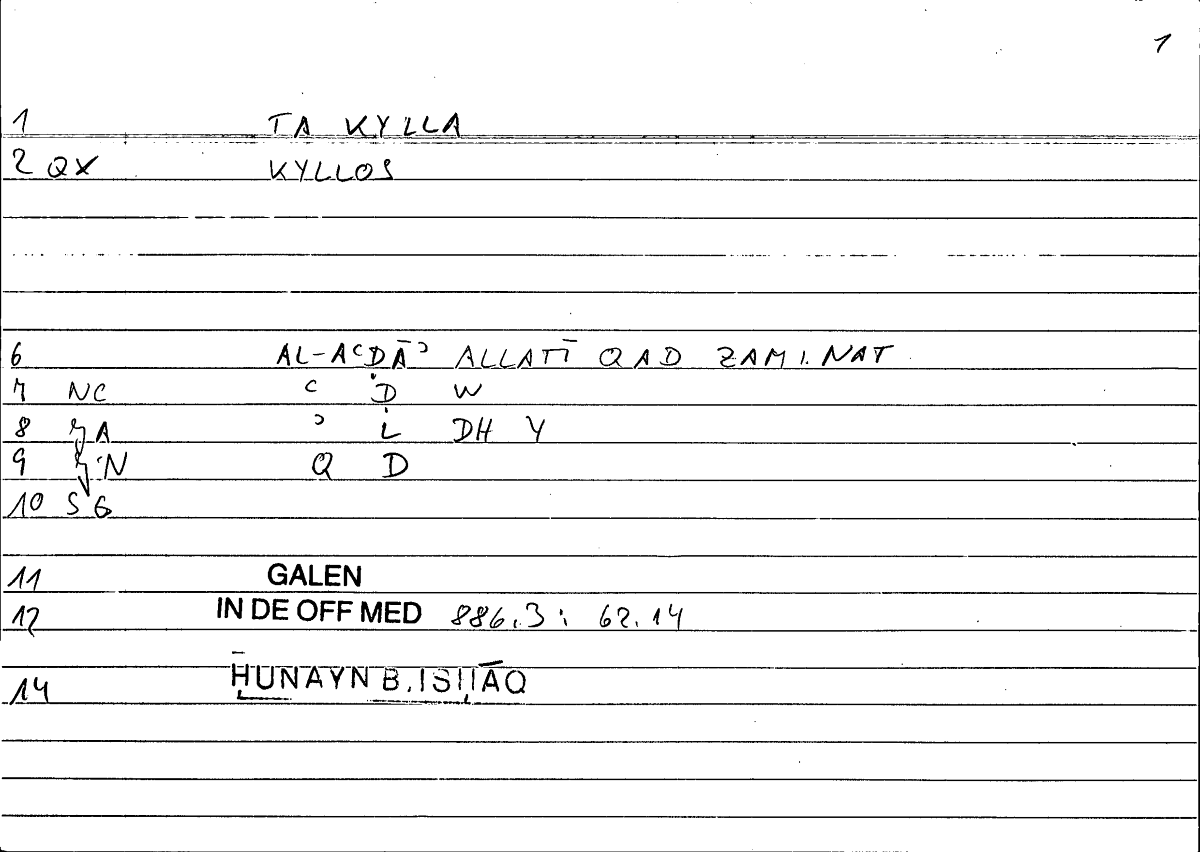 1
1 TA KYLLA
2 QX KYLLOS
6 AL-AʿḌĀʾ ALLATĪ QAD ZAMI.NAT
7 NC ʿ Ḍ W
8 A ʾ L DH Y
9 N Q D
10 SG
11 GALEN
12 IN DE OFF MED 886.3: 62.14
14 ḤUNAYN B. ISḤĀQ